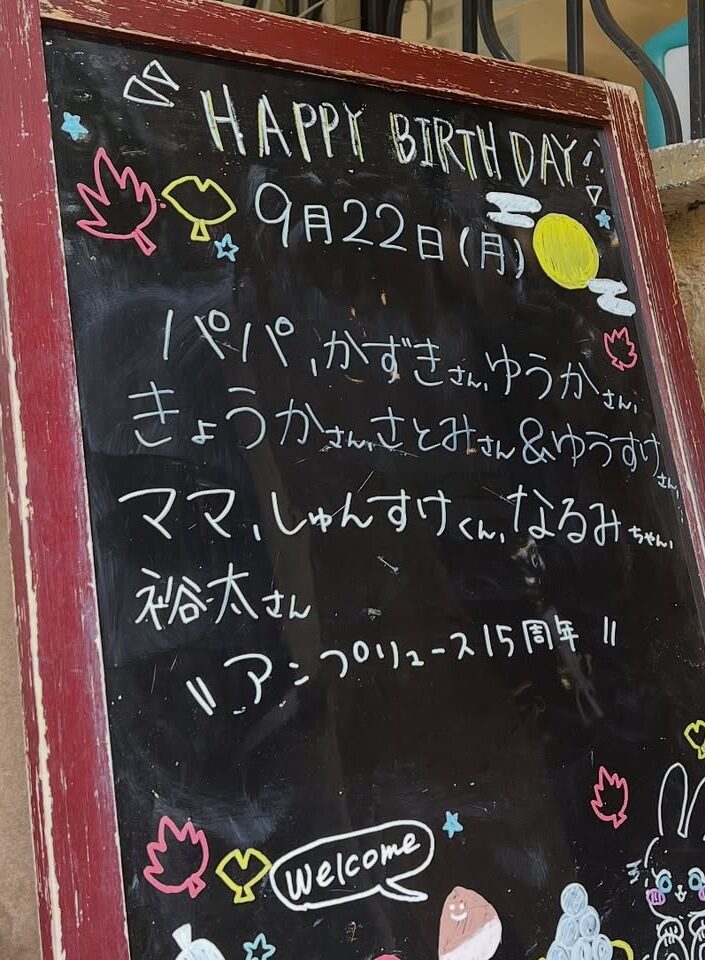 HAPPY BIRTHDAY
9月22日(月)
パパ、かずきさん、ゆうかさん、
きょうかさん、さとみさん&ゆうすけさん、
ママ、しゅんすけくん、なるみちゃん、
裕太さん
〃アンプリュース15周年〃
Welcome